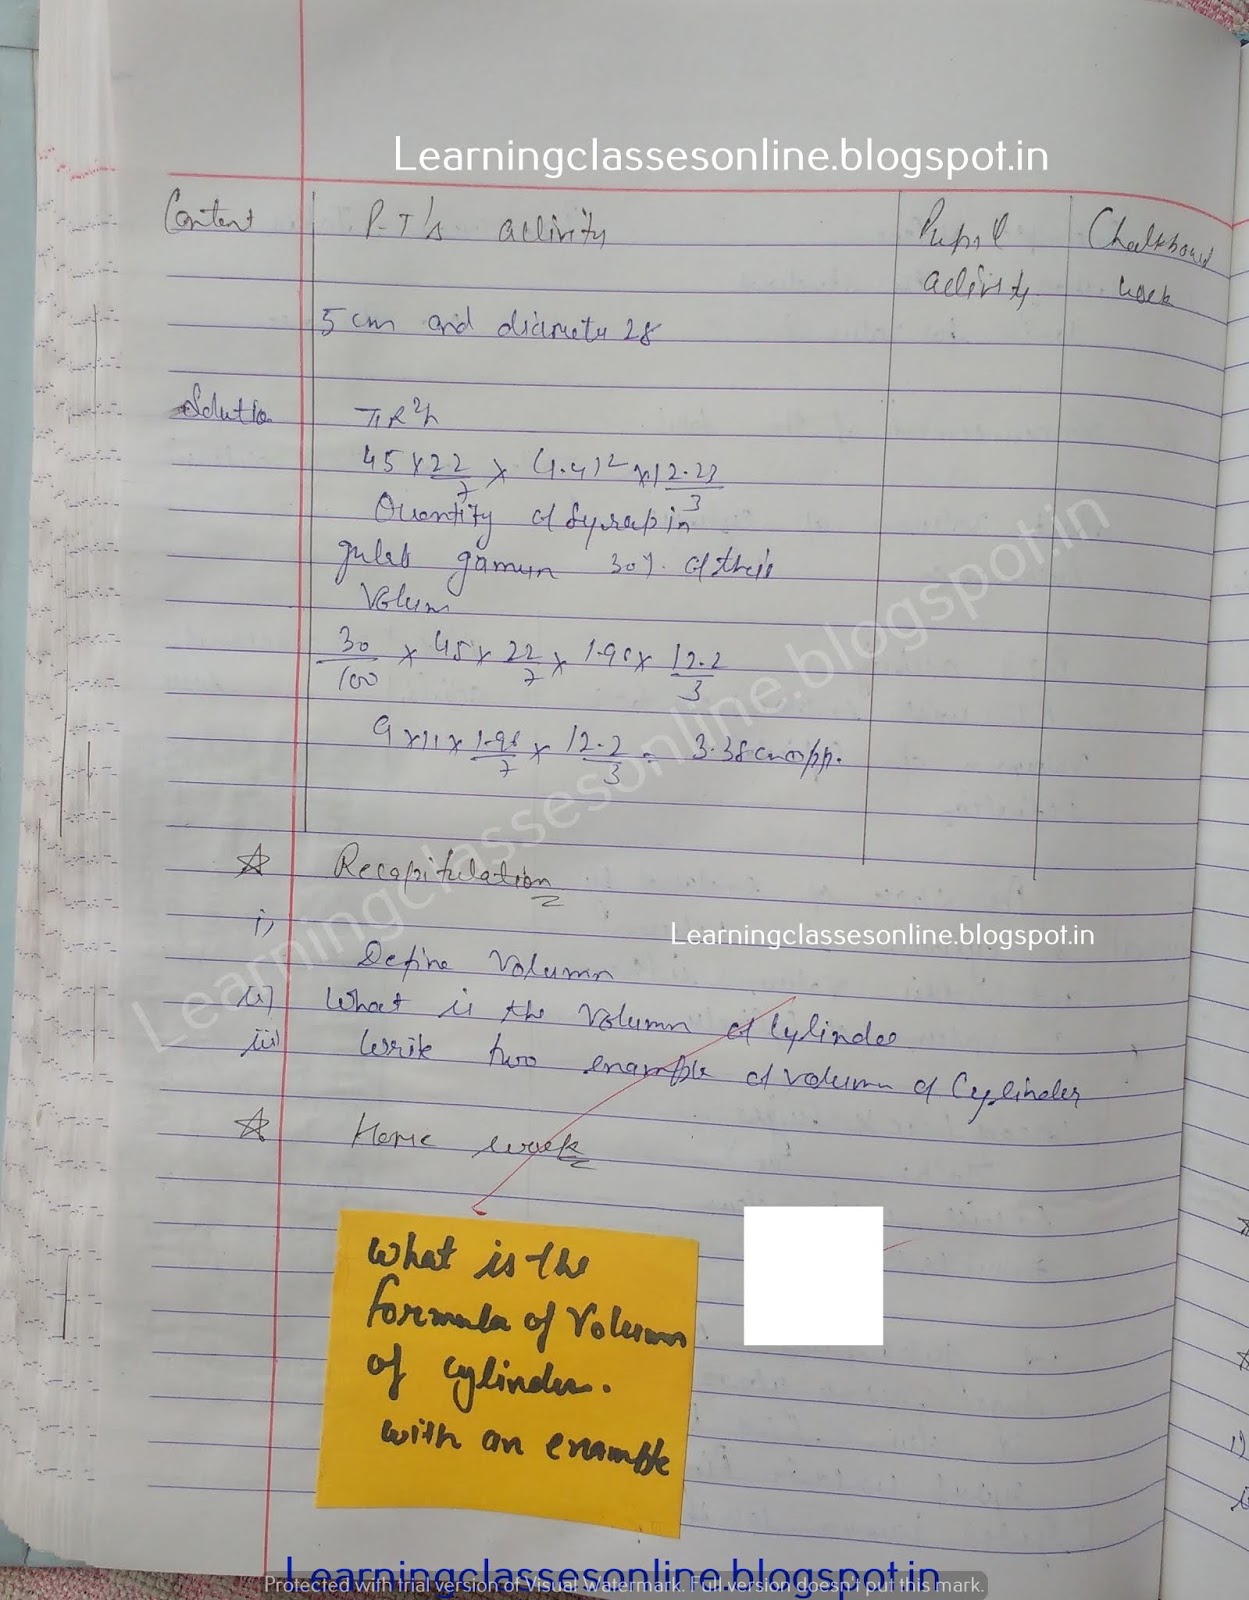 Learningclassesonline.blogspot.in
Content P.T's activity Pupil Chalkboard
activity work
5 cm and diametu 28
Solutio πR²h
45 × 22/7 × (1.4)² × 12.22/3
Quantity of Syrap in
gulab gamun 30% of their
Volum
30/100 × 45 × 22/7 × 1.96 × 12.2/3
9 × 11 × 1.96/7 × 12.2/3 = 3.38 cm app.
☆ Recapitulation
i)
Learningclassesonline.blogspot.in
Define Volumn
ii) What is the Volumn of Cylinder
iii) Write two example of volumn of Cylinder
☆ Home work
What is the
formula of Volumn
of cylinder.
with an example
Learningclassesonline.blogspot.in
Learningclassesonline.blogspot.in
Protected with trial version of Visual Watermark. Full version doesn't put this mark.